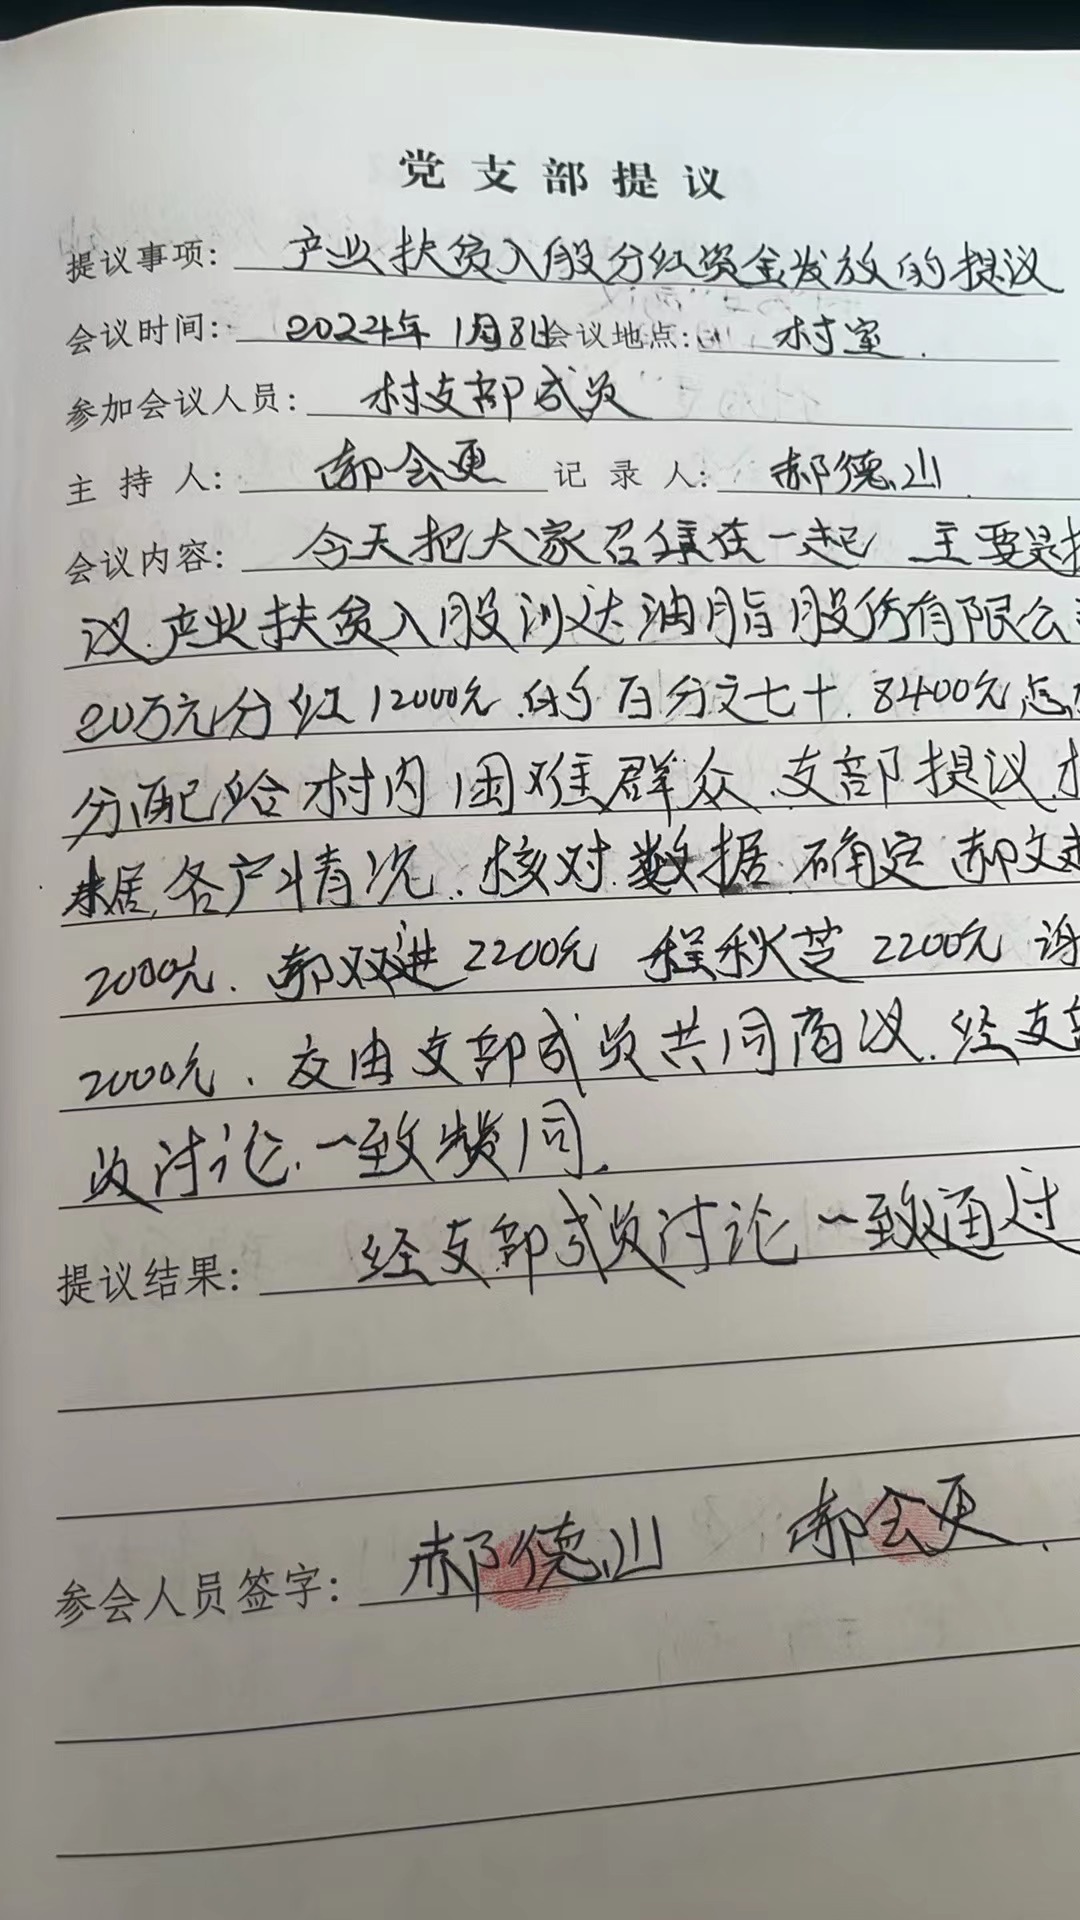 党支部提议
提议事项: 产业扶贫入股分红资金发放的提议
会议时间: 2024年1月8日 会议地点: 村室.
参加会议人员: 村支部成员
主持人: 郝会更 记录人: 郝德山.
会议内容: 今天把大家召集在一起 主要是
议.产业扶贫入股 达油脂股份有限公
20万元分红12000元.的百分之七十.8400元怎
分配给村内困难群众.支部提议.
据.各户情况.核对数据.确定郝文
2000元.郭双进2200元 程秋芝2200元
2000元.交由支部成员共同商议.经支部
员讨论.一致赞同.
提议结果: 经支部成员讨论一致通过
参会人员签字: 郝德山 郝会更.